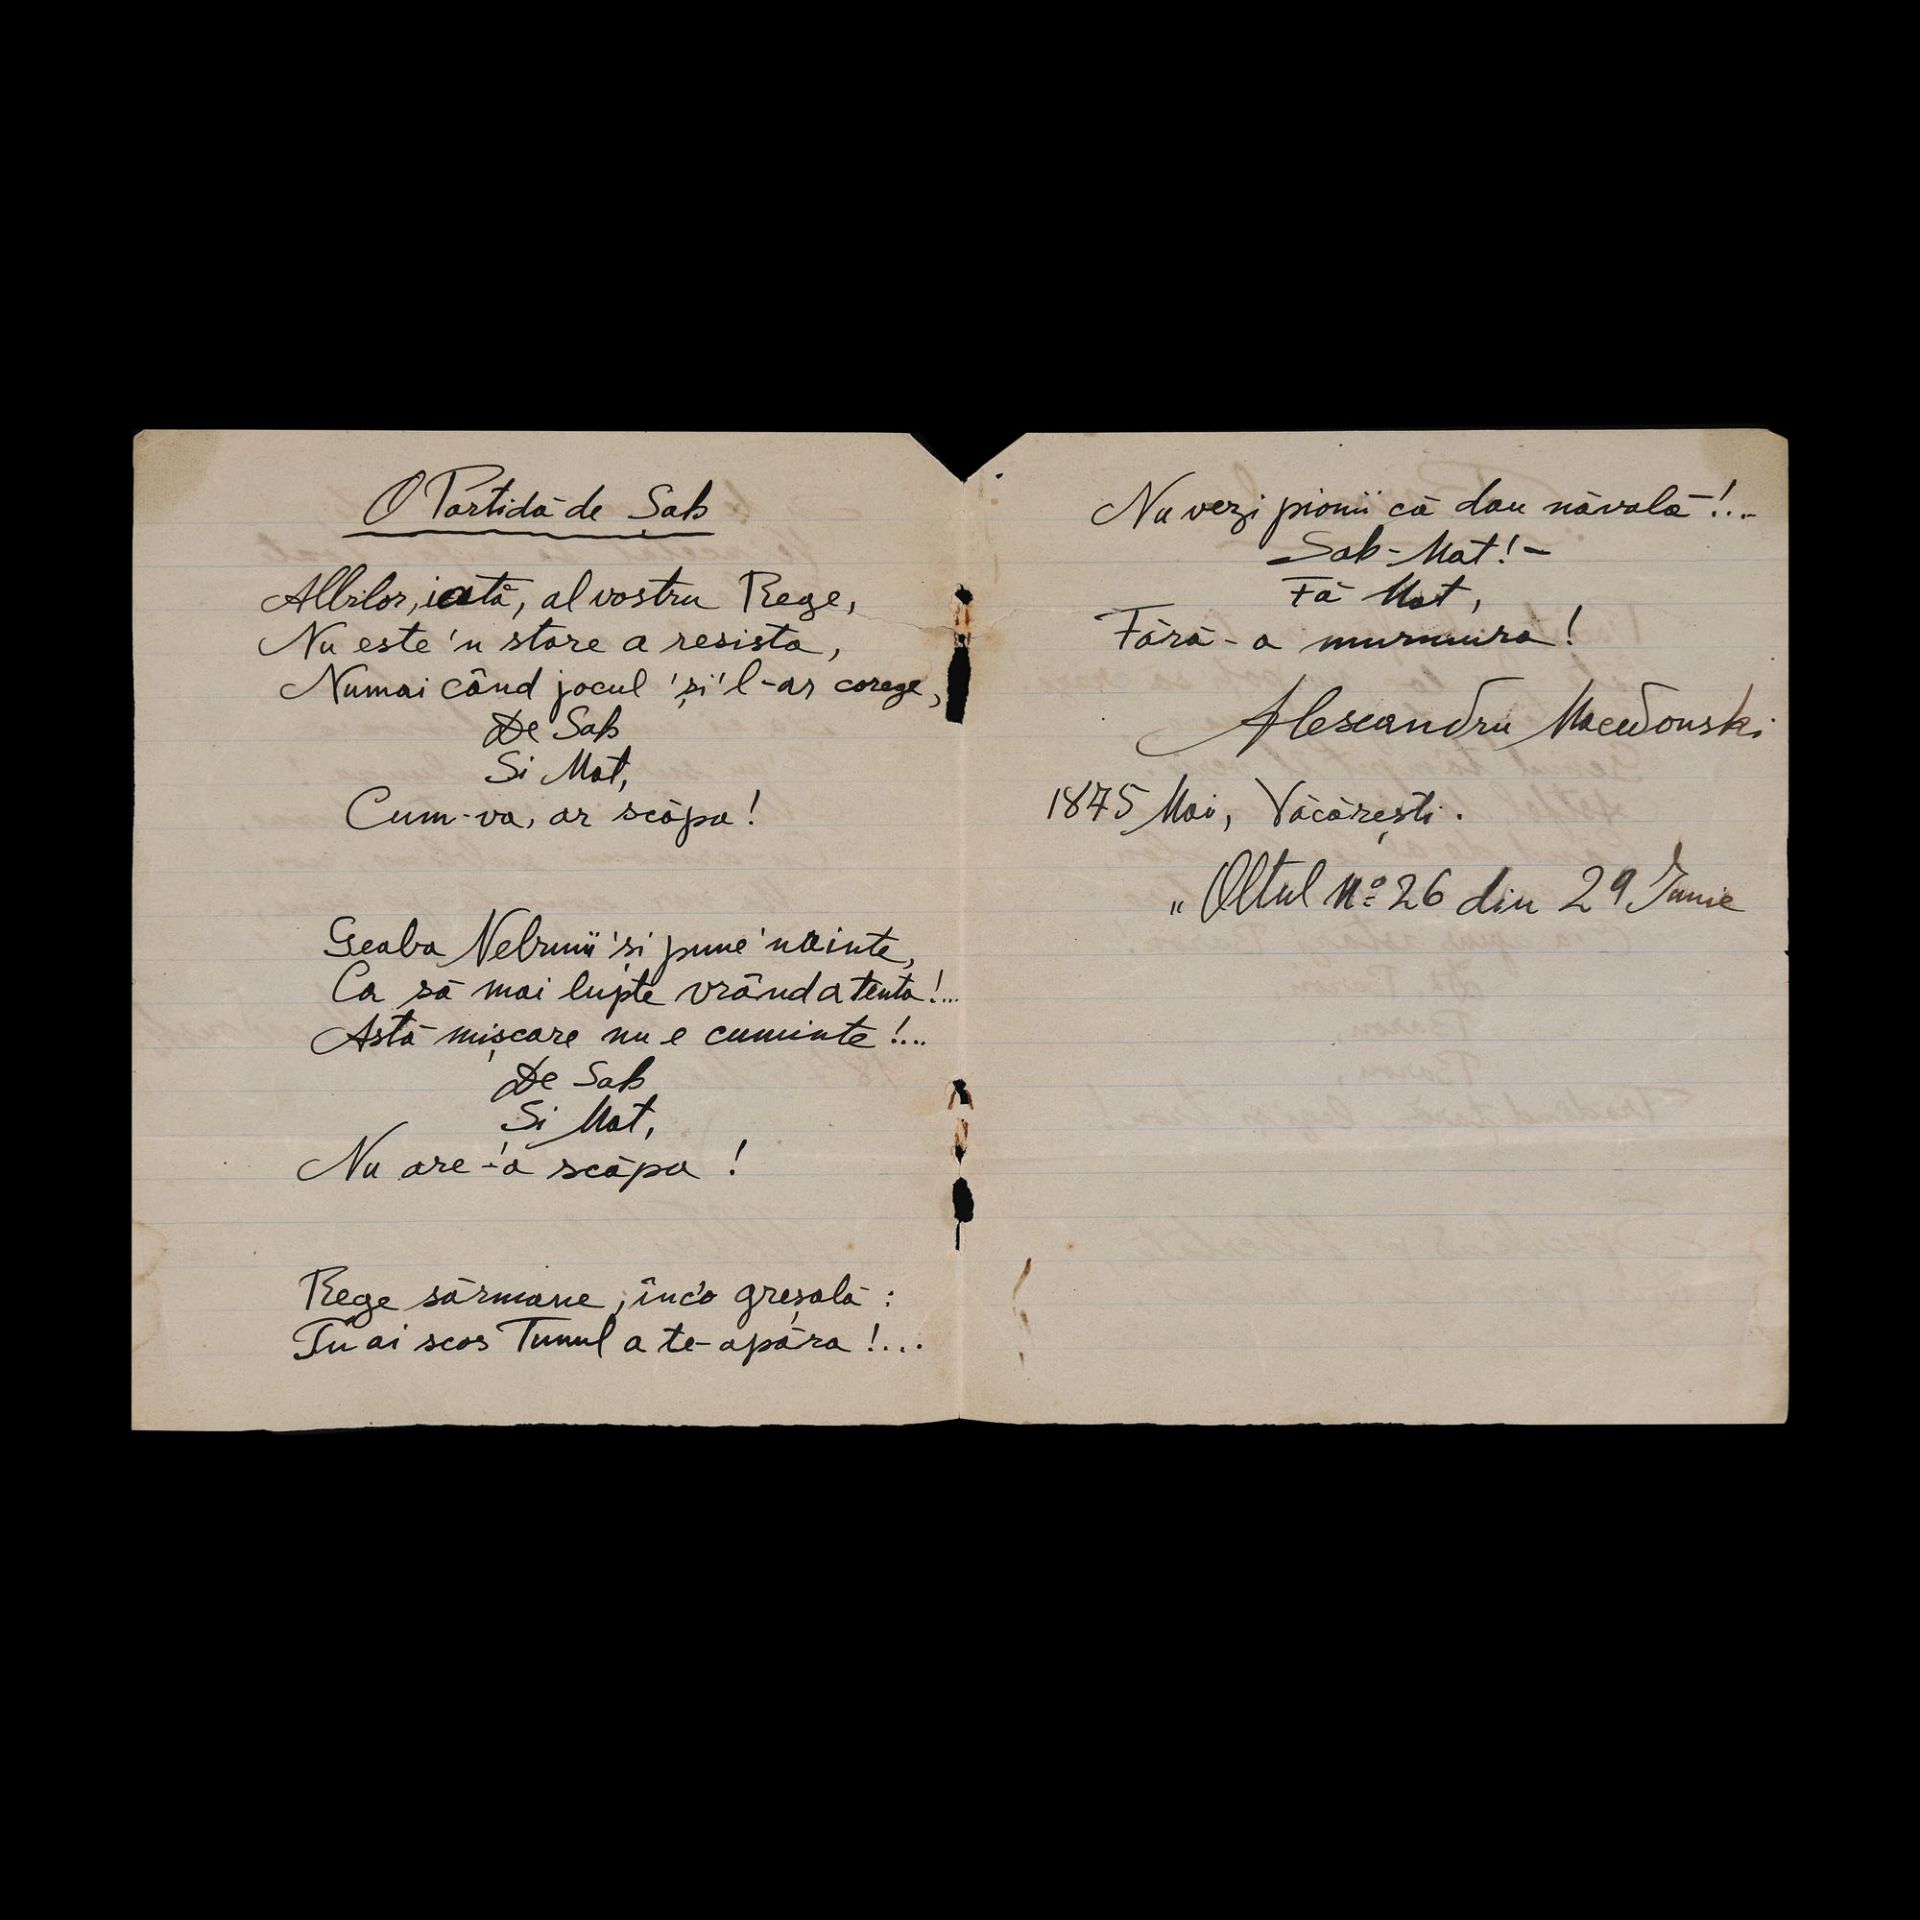 O Partidă de Șah
Albilor, iată, al vostru Rege,
Nu este 'n stare a resista,
Numai când jocul 'și 'l-ar corege,
De Șah
Si Mat,
Cum-va, ar scăpa!
Geaba Nebunii 'și pune 'nainte,
Ca să mai lupte vrând a tenta!...
Astă mișcare nu e cuminte!...
De Sah
Si Mat,
Nu are-'a scăpa!
Rege sărmane, înc'o greșală:
Tu ai scos Tunul a te-apăra!...
Nu vezi pionii că dau năvală!...
Sah-Mat!-
Fă Mat,
Fără-a murmura!
Alesandru Macedonski
1875 Mai, Văcărești.
"Oltul No 26 din 29 Iunie